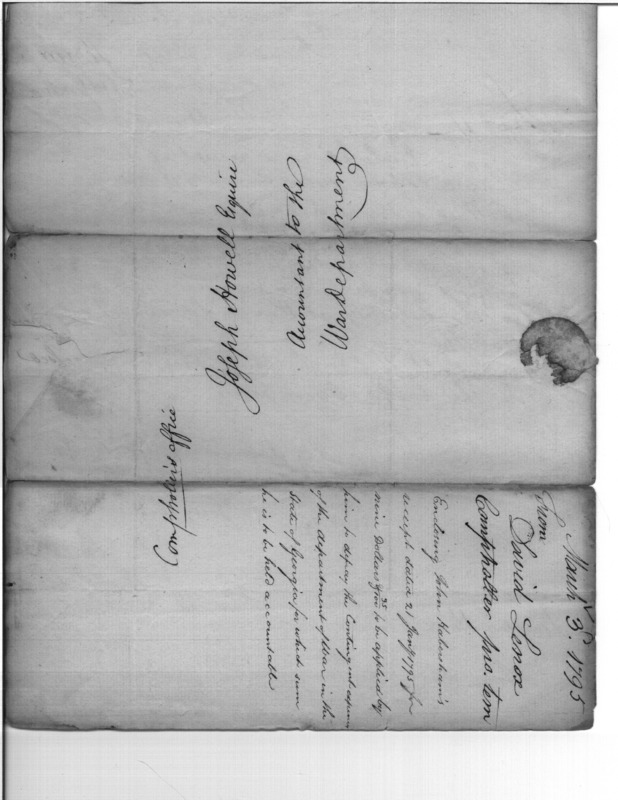 Joseph Howell Esquire
Accountant to the
War department
Comptroller's office
March 3d. 1795
From
David Lenox
Comptroller pro. tem
Enclosing John Habersham's
receipt dated 21 Jany 1795 for
nine Dollars 35/100 to be applied by
him to defray the Contingent expences
of the department of War in the
State of Georgia for which sum
he is to be held accountable